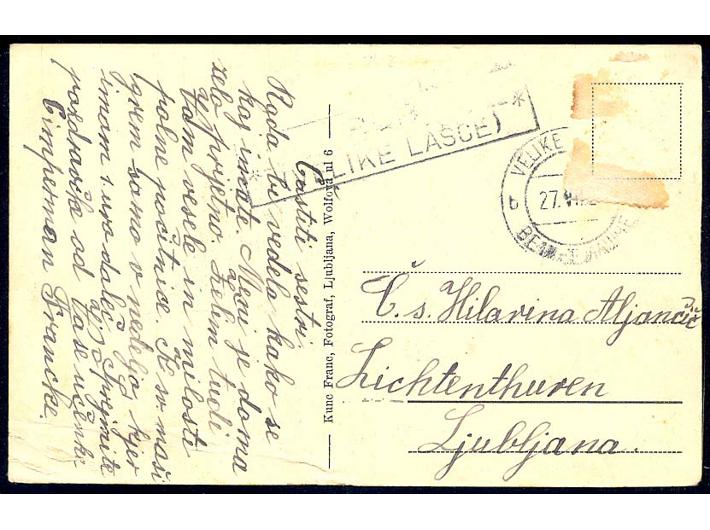 Častiti sestri.
Rada bi vedela kako se
kaj imate. Meni je doma
zelo prijetno. Želim tudi
Vam vesele in milosti
polne počitnice. K sv. maši
grem samo v nedeljo, kjer
imam 1 uro daleč. Sprejmite
pozdravčke od Vaše učenke
Cimperman Francke.
Kunc Franc, Fotograf, Ljubljana, Wolfova ul 6
(VELIKE LAŠČE)
VELIKE
b 27. VII.
Č. s. Hilarina Aljančič
Lichtenthuren
Ljubljana.